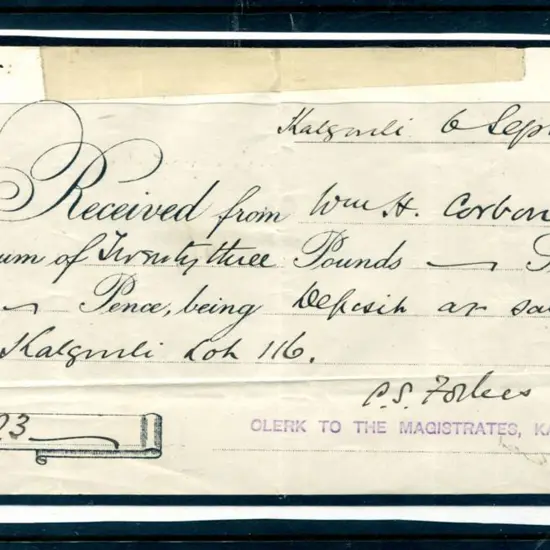 Kalgurli 6 Sep
Received from Wm H. Corbon
um of Twenty three Pounds
Pence, being Deposit at sa
Kalgurli Lot 116.
C. S. Forbes
23
CLERK TO THE MAGISTRATES, KA